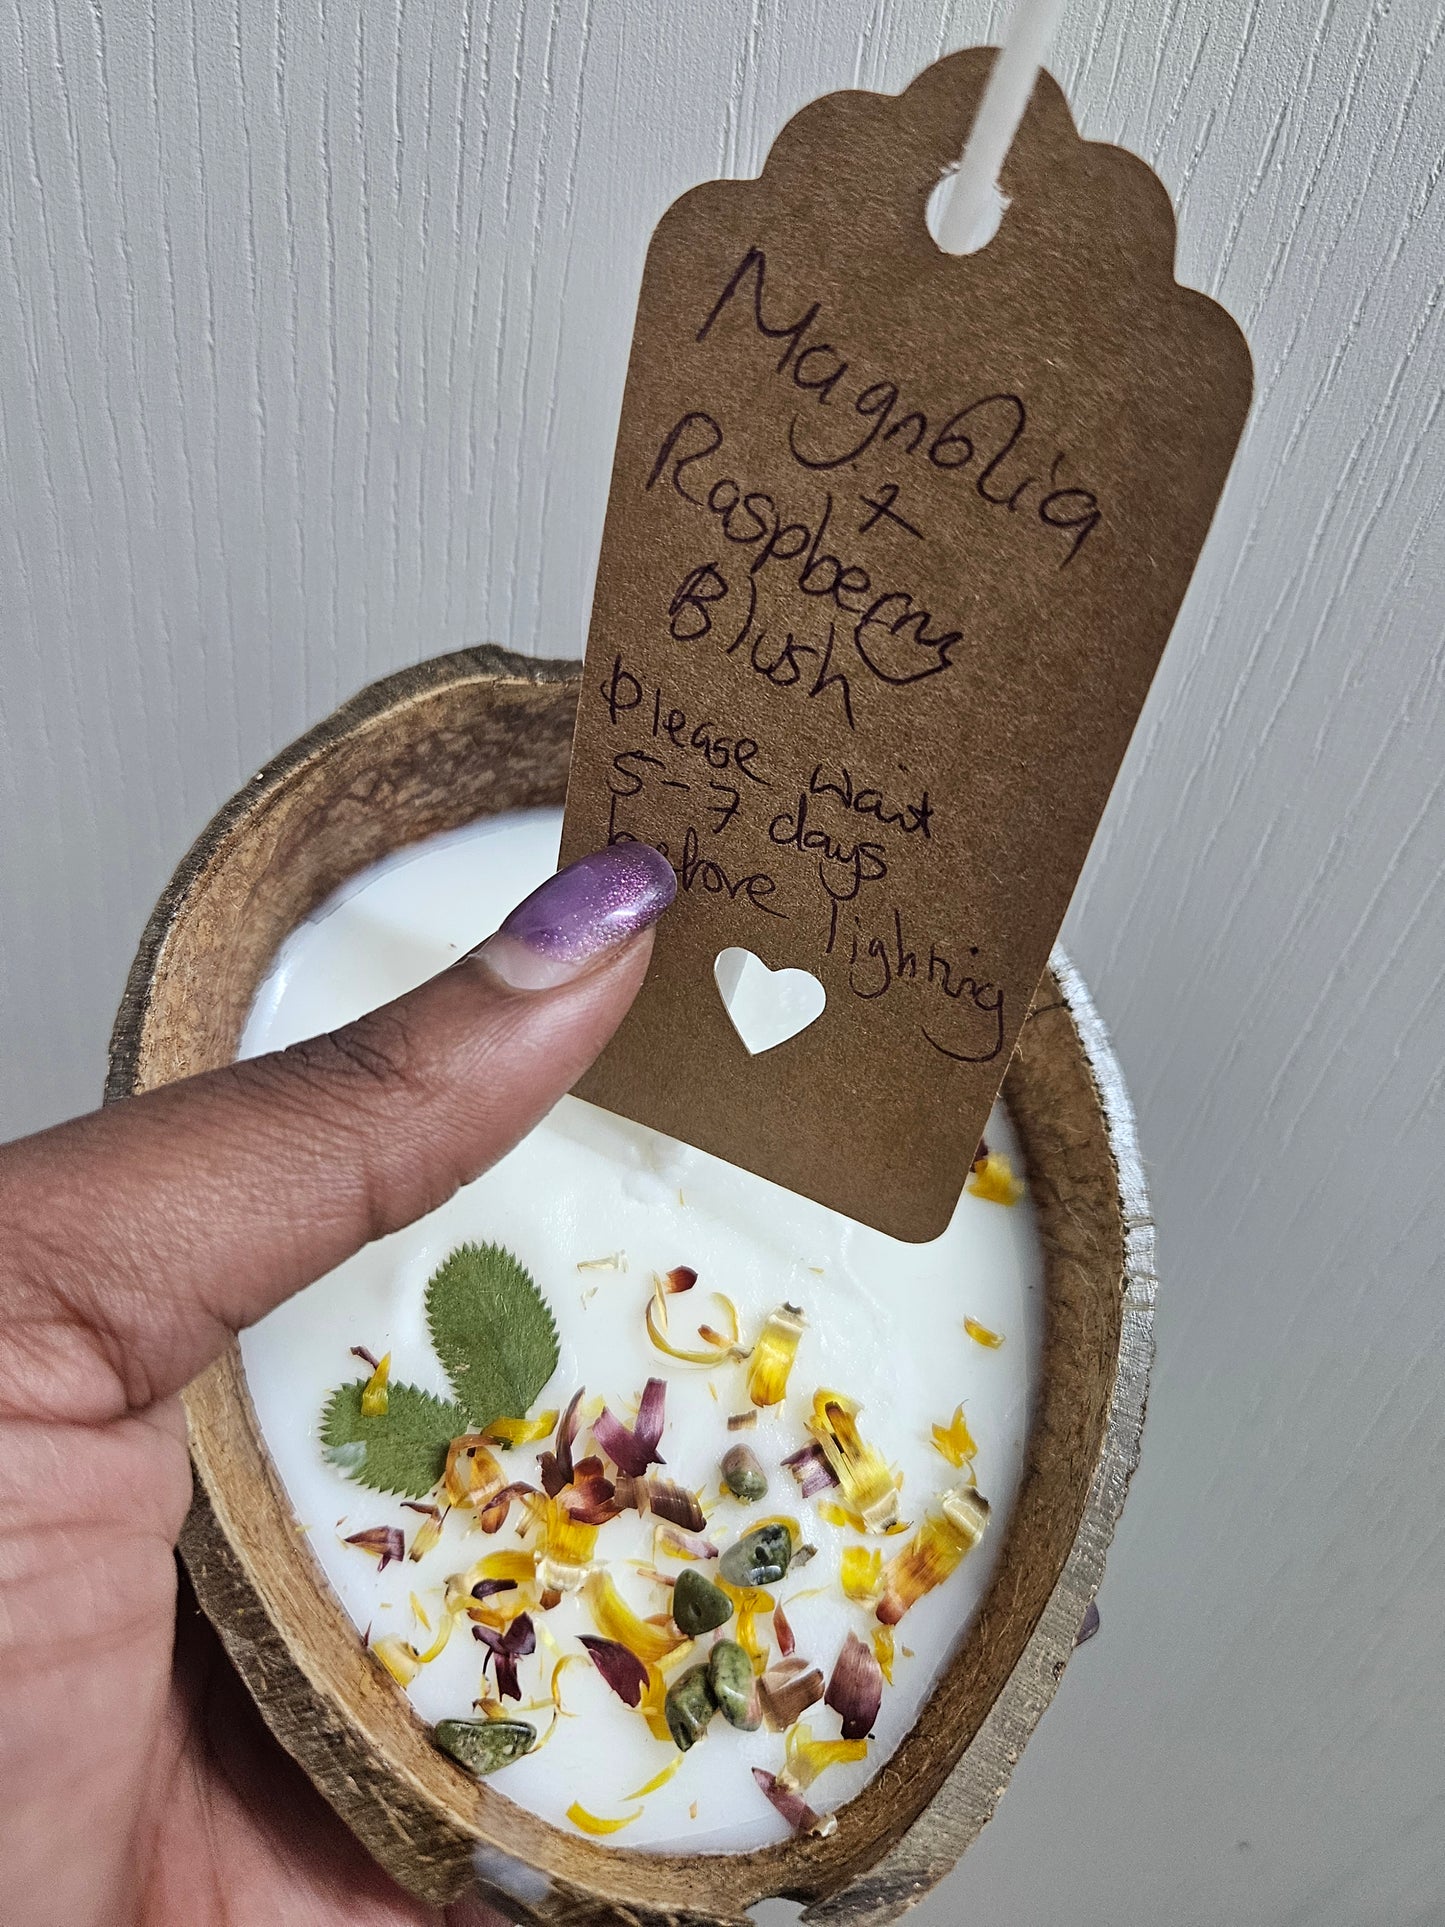 Magnolia
+
Raspberry
Blush
Please wait
5-7 days
before lighting